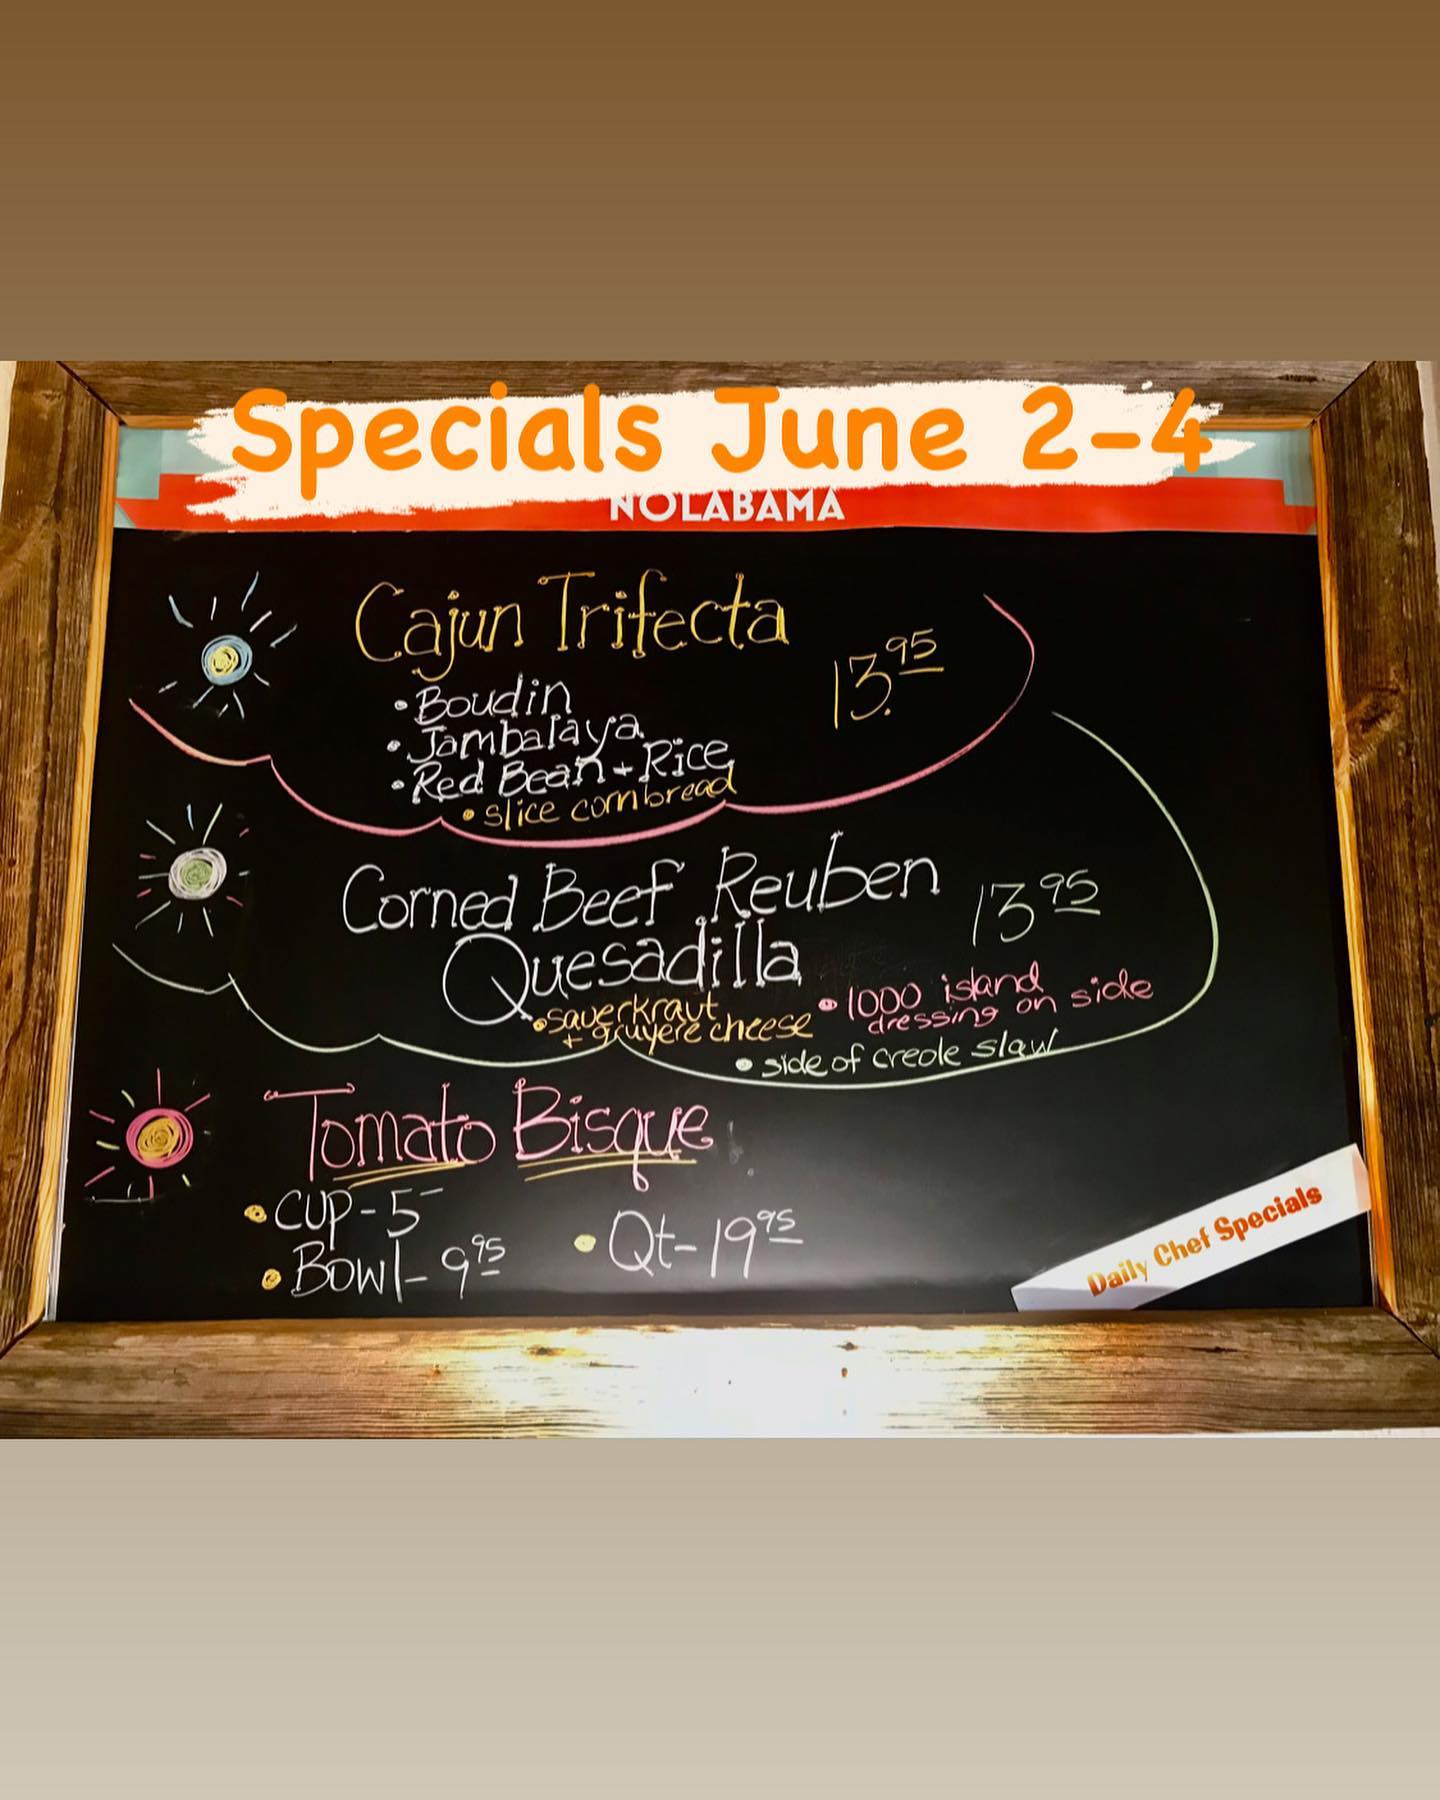 Specials June 2-4
NOLABAMA
Cajun Trifecta
13.95
• Boudin
• Jambalaya
• Red Bean + Rice
• slice cornbread
Corned Beef Reuben
Quesadilla
13 95
• sauerkraut
+ gruyere cheese
• 1000 island
dressing on side
• side of creole slaw
Tomato Bisque
• Cup - 5-
• Bowl - 9 95
• Qt - 19 95
Daily Chef Specials